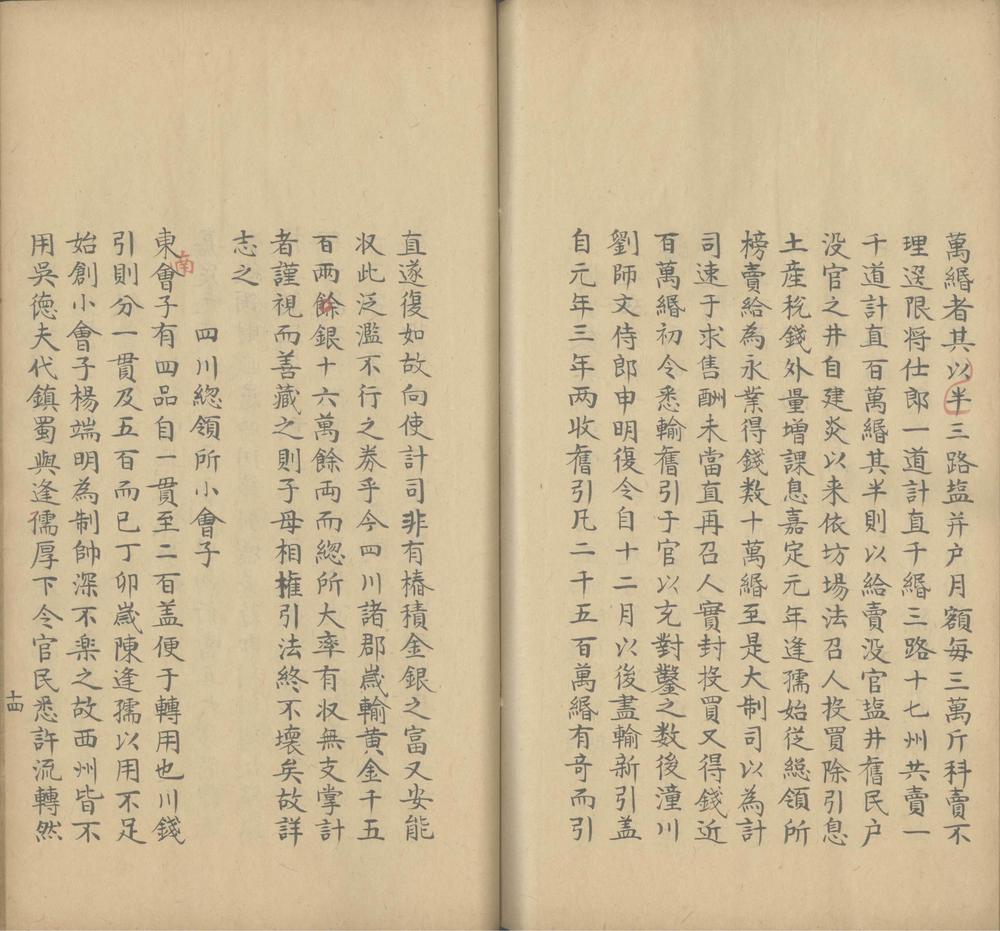 萬緡者其以半三路塩井户月額每三萬斤科賣不
理選限將仕郎一道計直千緡三路十七州共賣一
千道計直百萬緡其半則以給賣没官塩井舊民户
没官之井自建炎以来依坊場法召人投買除引息
土産稅錢外量增課息嘉定元年逢孺始從緫領所
榜賣給為永業得錢数十萬緡至是大制司以為計
司速于求售酬未當直再召人實封投買又得錢近
百萬緡初令悉輸舊引于官以充對鑿之数後潼川
劉師文侍郎申明復令自十二月以後盡輸新引盖
自元年三年两收舊引凡二千五百萬緡有竒而引
直遂復如故向使計司非有樁積金銀之富又安能
收此泛濫不行之券乎今四川諸郡歲輸黄金千五
百两餘銀十六萬餘两而緫所大率有收無支掌計
者謹視而善藏之則子母相權引法終不壞矣故詳
志之
四川緫領所小會子
東南會子有四品自一貫至二百盖便于轉用也川錢
引則分一貫及五百而已丁卯歲陳逢孺以用不足
始創小會子楊端明為制帥深不楽之故西州皆不
用吳德夫代鎮蜀與逢孺厚下令官民悉許流轉然
十四